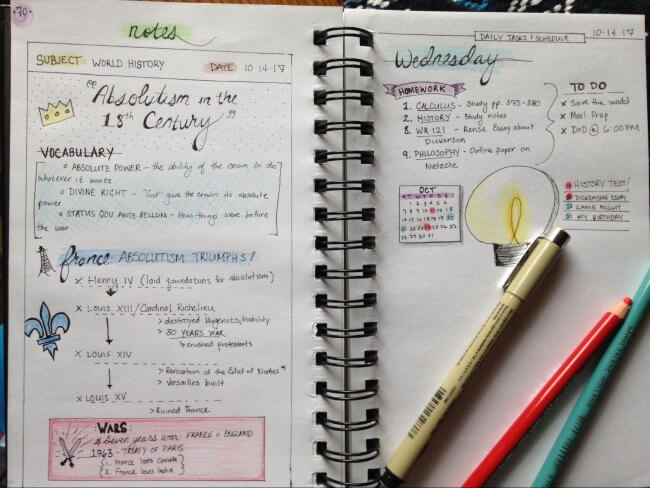 70
notes
SUBJECT: WORLD HISTORY DATE: 10-14-17
"Absolutism in the
18th Century"
VOCABULARY
ABSOLUTE POWER - the ability of the crown to do
whatever it wants
DIVINE RIGHT - "God" gave the crown its absolute
power
STATUS QOU ANTE BELLUM - How things were before
the war
france ABSOLUTISM TRIUMPHS!
x Henry IV (laid foundations for absolutism)
x Louis XIII/Cardinal Richelieu
> destroyed Hugenots/nobility
> 30 YEARS WAR
> crushed protestants
x Louis XIV
> Revocation of the Edict of Nantes *
> Versailles built
x Louis XV
> Ruined France
WARS:
Seven years war: FRANCE v. ENGLAND
1763 - TREATY OF PARIS
1. France loses Canada
2. France loses India
DAILY TASKS & SCHEDULE 10-14-17
Wednesday
HOMEWORK
1. CALCULUS - Study pp. 375-380
2. HISTORY - Study notes
8. WR 121 - Revise Essay about
Dickenson
9. PHILOSOPHY - Outline paper on
Nietzche
TO DO
x Save the world
x Meal Prep
x DnD @ 6:00 PM
OCT
M T W T F S S
HISTORY TEST!
DICKENSON ESSAY
GAME NIGHT
21 MY BIRTHDAY